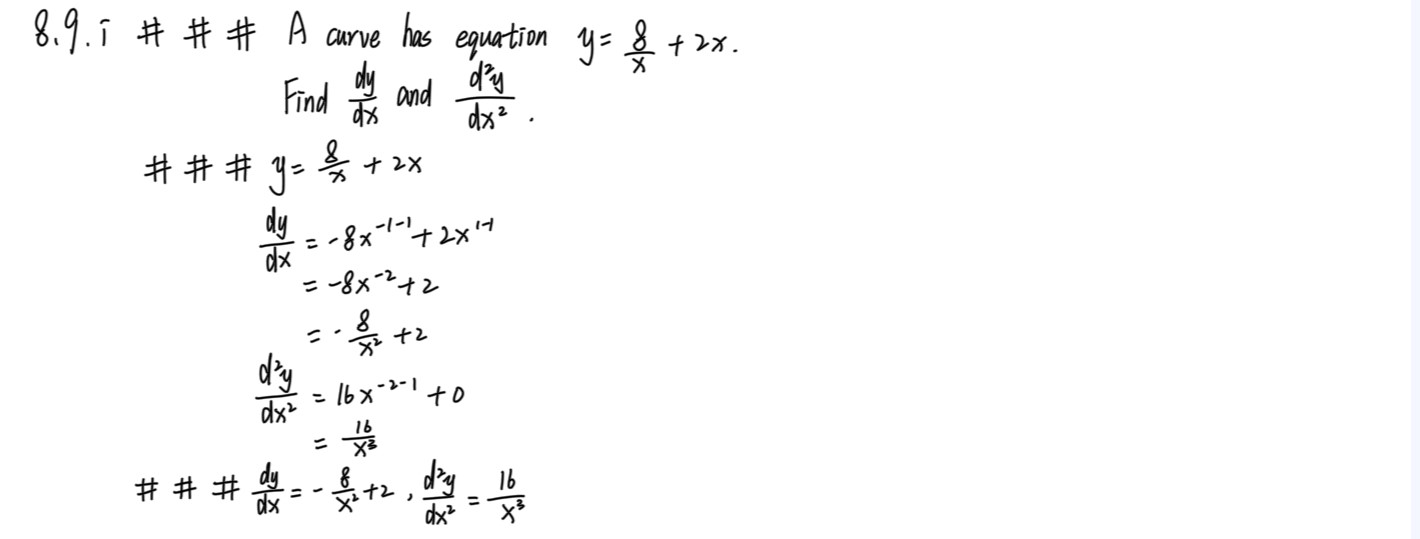 8.9.i # # # A curve has equation y = 8/x + 2x.
Find dy/dx and d²y/dx².
# # # y = 8/x + 2x
dy/dx = -8x⁻¹⁻¹ + 2x¹⁻¹
= -8x⁻² + 2
= -8/x² + 2
d²y/dx² = 16x⁻²⁻¹ + 0
= 16/x³
# # # dy/dx = -8/x² + 2, d²y/dx² = 16/x³